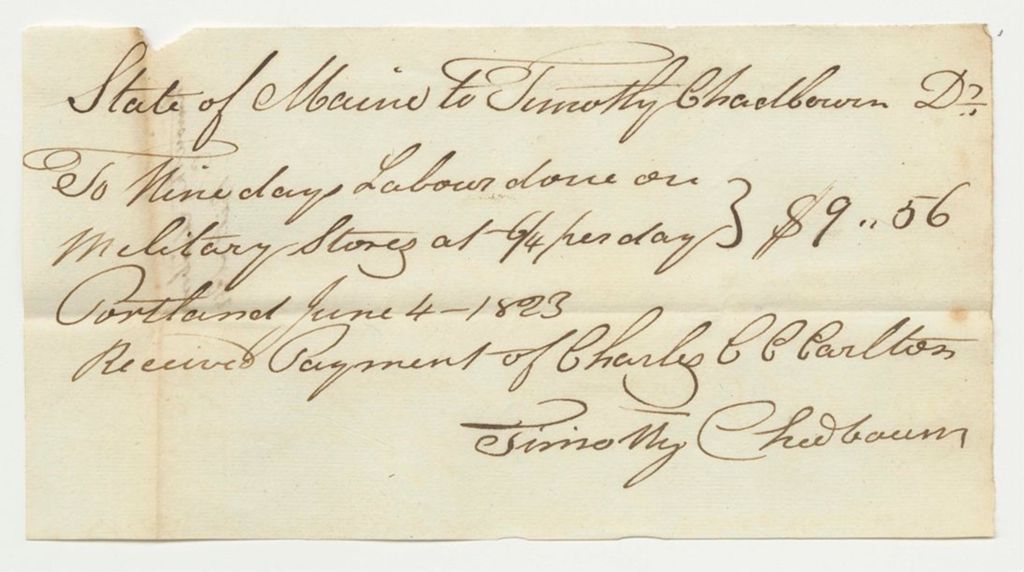 State of Maine to Timothy Chadbourn Dr.
To Nine days Labour done on
Military Stores at 6/4 per day } $9 .. 56
Portland June 4 - 1823
Received Payment of Charles C C Carlton
Timothy Chedbourn